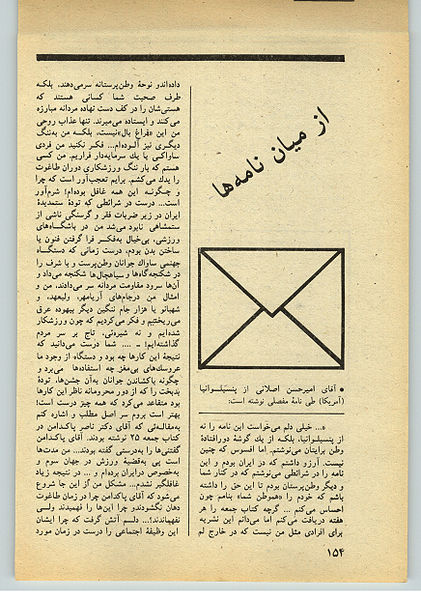 از میان نامه‌ها
• آقای امیرحسن اصلانی از پنسیلوانیا
(آمریکا) طی نامهٔ مفصلی نوشته است:
«... خیلی دلم می‌خواست این نامه را نه
از پنسیلوانیا، بلکه از یك گوشهٔ دورافتادهٔ
وطن برایتان می‌نوشتم. اما افسوس که چنین
نیست. آرزو داشتم که در ایران بودم و این
نامه را در شرائطی می‌نوشتم که در کنار شما
و دیگر وطن‌پرستان بودم تا این حق را داشته
باشم که خودم را «هموطن شما» بنامم چون
احساس می‌کنم ... گرچه کتاب جمعه را هر
هفته دریافت می‌کنم اما می‌دانم این نشریه
برای افرادی مثل من نیست که در خارج لم
داده‌اندو نوحهٔ وطن‌پرستانه سرمی‌دهند، بلکه
طرف صحبت شما کسانی هستند که
هستی‌شان را در کف دست نهاده مردانه مبارزه
می‌کنند و ایستاده می‌میرند. تنها عذاب روحی
من این «فراغ بال»نیست، بلکه من به‌ننگ
دیگری نیز آلوده‌ام... فکر نکنید من فردی
ساواکی یا یك سرمایه‌دار فراریم. من کسی
هستم که بار ننگ ورزشکاری دوران طاغوت
را یدك می‌کشم. برایم تعجب‌آور است که چرا
و چگونه این همه غافل بوده‌ام! شرم‌آور
است... درست در شرائطی که تودهٔ ستمدیدهٔ
ایران در زیر ضربات فقر و گرسنگی ناشی از
ستمشاهی نابود می‌شد من در باشگاه‌های
ورزشی، بی‌خیال به‌فکر فرا گرفتن فنون یا
ساختن بدن بودم، درست زمانی که دستگاه
جهنمی ساواك جوانان وطن‌پرست و با شرف را
در شکنجه‌گاه‌ها و سیاهچال‌ها شکنجه می‌داد و
آن‌ها سرود مقاومت مردانه سر می‌دادند، من و
امثال من درجام‌های آریامهر، ولیعهد، و
شهبانو یا هزار جام ننگین دیگر بیهوده عرق
می‌ریختیم و فکر می‌کردیم که چون ورزشکار
شده‌ایم و نه شیره‌ئی، تاج بر سر مردم
گذاشته‌ایم! ـ ... شما درست می‌دانید که
نتیجهٔ این کارها چه بود و دستگاه از وجود ما
عروسك‌های بی‌مغز چه استفاده‌ها می‌برد و
چگونه باکشاندن جوانان به‌آن جشن‌ها، تودهٔ
بدبخت را که از دور محرومانه ناظر این کارها
بود متقاعد می‌کرد که همه چیز درست است!
بهتر است بروم سر اصل مطلب و اشاره کنم
به‌مقاله‌ئی که آقای دکتر ناصر پاکدامن در
کتاب جمعه ۲۵ نوشته بودند. آقای پاکدامن
گفتنی‌ها را به‌درستی گفته بودند... من مدت‌ها
است پی به‌قضیهٔ ورزش در جهان سوم و
به‌خصوص درایران برده‌ام و ... در نتیجه زیاد
غافلگیر نشدم... مشکل من از این جا شروع
می‌شود که آقای پاکدامن چرا در زمان طاغوت
دهان نگشودندو چرا این‌ها را فهمیدند ولی
نفهماندند!... دلم آتش گرفت که چرا ایشان
این وظیفهٔ اجتماعی را درست در زمان مورد
۱۵۴